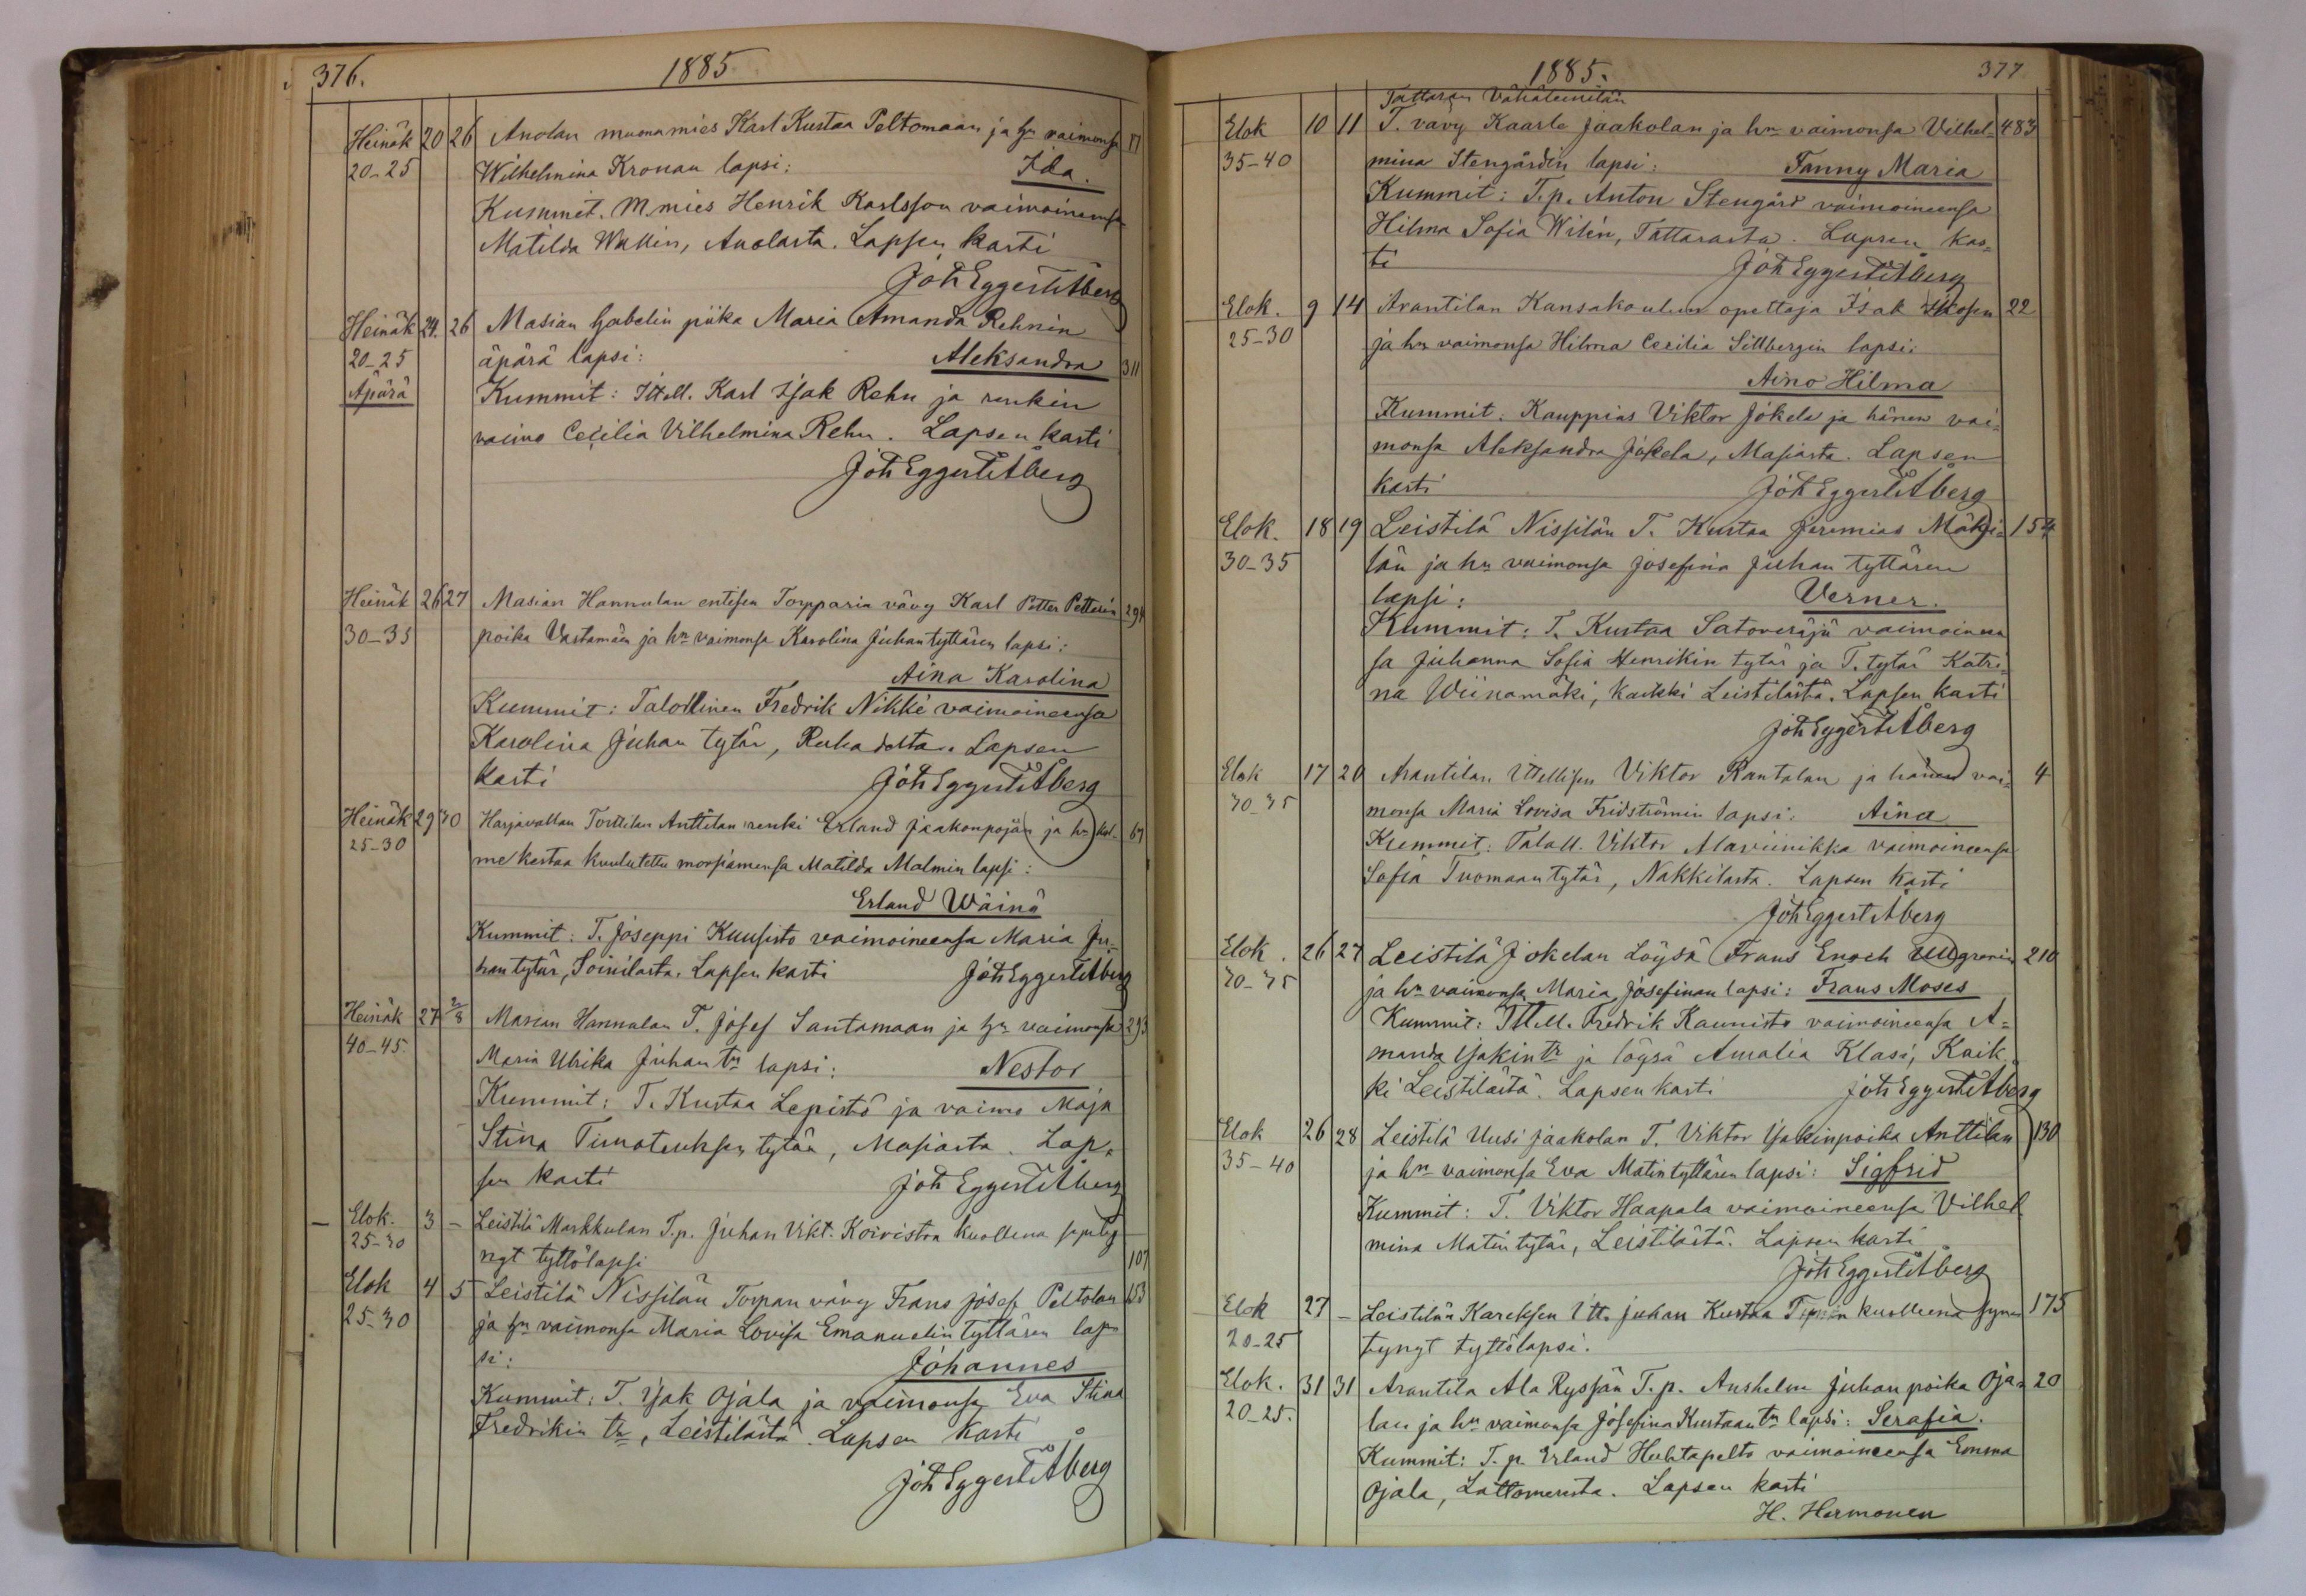 376.
1885
Heinäk 20 26 Anolan muonamies Karl Kustaa Peltomaan ja hn vaimonsa
20-25 Wilhelmina Kronan lapsi: Ida.
Kummit. M.mies Henrik Karlsson vaimoinensa
Matilda Wallin, Anolasta. Lapsen kasti
Joh Eggert Åberg
Heinäk 24. 26 Masian Gabelin piika Maria Amanda Rehnin
20-25 äpärä lapsi: Aleksandra 311
Äpärä Kummit: Itell. Karl Isak Rehn ja renkin
vaimo Cecilia Vilhelmina Rehn. Lapsen kasti
Joh Eggert Åberg
Heinäk 26 27 Masian Hannulan entisen Torpparin vävy Karl Petter Petterin
30-35 poika Vastamäen ja hn vaimonsa Karolina Juhantyttären lapsi:
Aina Karolina
Kummit: Talollinen Fredrik Nikki vaimoineensa
Karolina Juhan tytär, Ruhadesta. Lapsen
kasti Joh Eggert Åberg
Heinäk 29 30 Harjavallan Torttilan Anttilan renki Erland Jaakonpojan ja hn kol-
25-30 me kertaa kuulutettu morsiamensa Matilda Malmin lapsi:
Erland Wäinö
Kummit: T. Joseppi Kuusisto vaimoineensa Maria Ju-
han tytär, Soinilasta. Lapsen kasti Joh Eggert Åberg
Heinäk 27 2/8 Masian Hannulan T. Josef Santamaan ja hn vaimonsa 293
40-45. Maria Ulrika Juhan tn lapsi: Nestor
Kummit: T. Kustaa Lepistö ja vaimo Maja
Stina Timoteuksen tytär, Masiasta. Lap-
sen kasti Joh Eggert Åberg
— Elok. 3 – Leistilä Markkulan T.p. Juhan Vikt. Koiviston kuollena synty
25-30 nyt tyttölapsi 107
Elok 4 5 Leistilä Nissilän Torpan vävy Frans Josef Peltolan 153
25-30 ja hn vaimonsa Maria Lovisa Emanuelin tyttären lap
si: Johannes
Kummit: T. Isak Ojala ja vaimonsa Eva Stina
Fredrikin tr, Leistilästä. Lapsen kasti
Joh Eggert Åberg
1885.
377
Tattaran Vähäteinilän
Elok 10 11 T. vävy Kaarle Jaakolan ja hn vaimonsa Vilhel- 483
35-40 mina Stengårdin lapsi: Fanny Maria
Kummit: T.p. Anton Stengård vaimoineensa
Hilma Sofia Wilén, Tattarasta. Lapsen kas=
ti Joh Eggert Åberg
Elok. 9 14 Arantilan Kansakoulun opettaja Isak 22
25-30 ja hn vaimonsa Hilma Cecilia Sillbergin lapsi:
Aino Hilma
Kummit: Kauppias Viktor Jokela ja hänen vai-
monsa Aleksandra Jokela, Masiasta. Lapsen
kasti Joh Eggert Åberg
Elok. 18 19 Leistilä Nissilän T. Kustaa Jeremias Mäkji- 154
30-35 län ja hn vaimonsa Josefina Juhan tyttären
lapsi: Verner.
Kummit: T. Kustaa Satoveräjä vaimoineen
sa Juhanna Sofia Henrikin tytär ja T. tytär Katri-
na Wiinamäki, kaikki Leistilästä. Lapsen kasti
Joh Eggert Åberg
Elok 17 20 Arantilan Itellisen Viktor Rantalan ja hänen vai- 4
30-35 monsa Maria Lovisa Fridströmin lapsi: Aina
Kummit: Taloll. Viktor Alaviinikka vaimoineensa
Sofia Tuomaantytär, Nakkilasta. Lapsen kasti
Joh Eggert Åberg
Elok. 26 27 Leistilä Jokelan Löysä Frans Enoch 210
30-35 ja hn vaimonsa Maria Josefinan lapsi: Frans Moses
Kummit: Itell. Fredrik Kaunisto vaimoineensa A=
manda Isakin tr ja löysä Amalia Klasi, Kaik
ki Leistilästä. Lapsen kasti Joh Eggert Åberg
Elok 26 28 Leistilä Uusi Jaakolan T. Viktor Isakinpoika Anttilan 130
35-40 ja hn vaimonsa Eva Matintyttären lapsi: Sigfrid
Kummit: T. Viktor Haapala vaimoineensa Vilhel
mina Matin tytär, Leistilästä. Lapsen kasti
Joh Eggert Åberg
Elok 27 – Leistilän Kareksen Itt. Juhan Kustaa kuolleena synn 175
20-25 tynyt tyttölapsi.
Elok. 31 31 Arantila Ala Ryssän T.p. Anshelm Juhan poika Oja- 20
20-25. lan ja hn vaimonsa Josefina Kustaan tn lapsi: Serafia.
Kummit: T.p. Erland Huhtapelto vaimoineensa Emma
Ojala, Lattomerista. Lapsen kasti
H. Hermonen